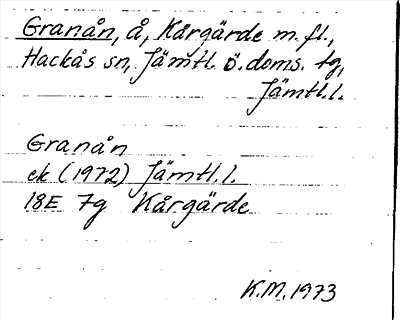 Granån, å, Kårgärde m.fl.,
Hackås sn, Jämtl. ö. doms. tg,
Jämtl.l.
Granån
ek (1972) Jämtl.l.
18E 7g Kårgärde
K.M. 1973